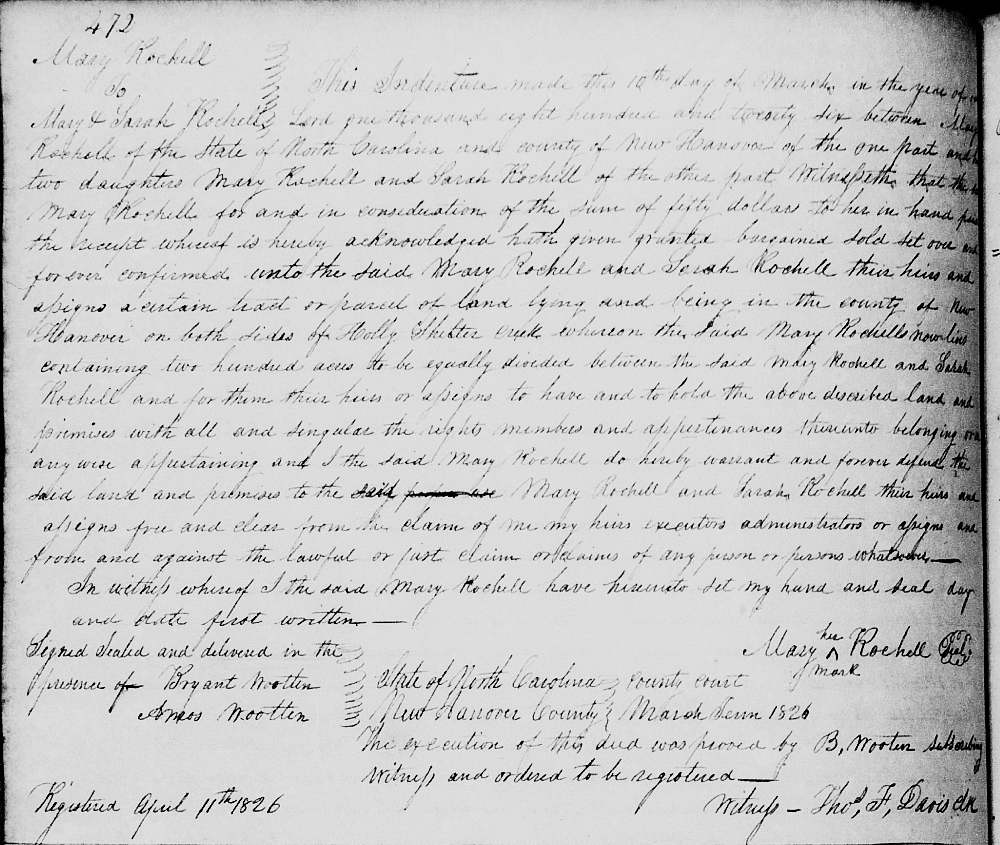 472
Mary Rochell
To
Mary & Sarah Rochell
This Indenture made this 10th day of March in the year of
Lord one thousand eight hundred and twenty six between Mary
Rochell of the State of North Carolina and county of New Hanover of the one part and
two daughters Mary Rochell and Sarah Rochell of the other part Witnesseth that the
Mary Rochell for and in consideration of the sum of fifty dollars to her in hand paid
the receipt whereof is hereby acknowledged hath given granted bargained sold set over and
forever confirmed unto the said Mary Rochell and Sarah Rochell their heirs and
assigns a certain tract or parcel of land lying and being in the county of New
Hanover on both sides of Holly Shelter creek whereon the said Mary Rochells now lives
containing two hundred acres to be equally divided between the said Mary Rochell and Sarah
Rochell and for them their heirs or assigns to have and to hold the above described land and
premises with all and singular the rights members and appertinances thereunto belonging or in
any wise appertaining and I the said Mary Rochell do hereby warrant and forever defend the
said land and premises to the said Mary Rochell and Sarah Rochell their heirs and
assigns free and clear from the claim of me my heirs executors administrators or assigns and
from and against the lawful or just claim or claims of any person or persons whatsoever —
In witness whereof I the said Mary Rochell have hereunto set my hand and seal day
and date first written —
Mary her Rochell Seal
mark
Signed Sealed and delivered in the
presence of Bryant Wootten
Amos Wootten
State of North Carolina county court
New Hanover County March Term 1826
The execution of this deed was proved by B, Wooten subscribing
Witness and ordered to be registered —
Witness — Thos, F, Davis clk
Registered April 11th 1826